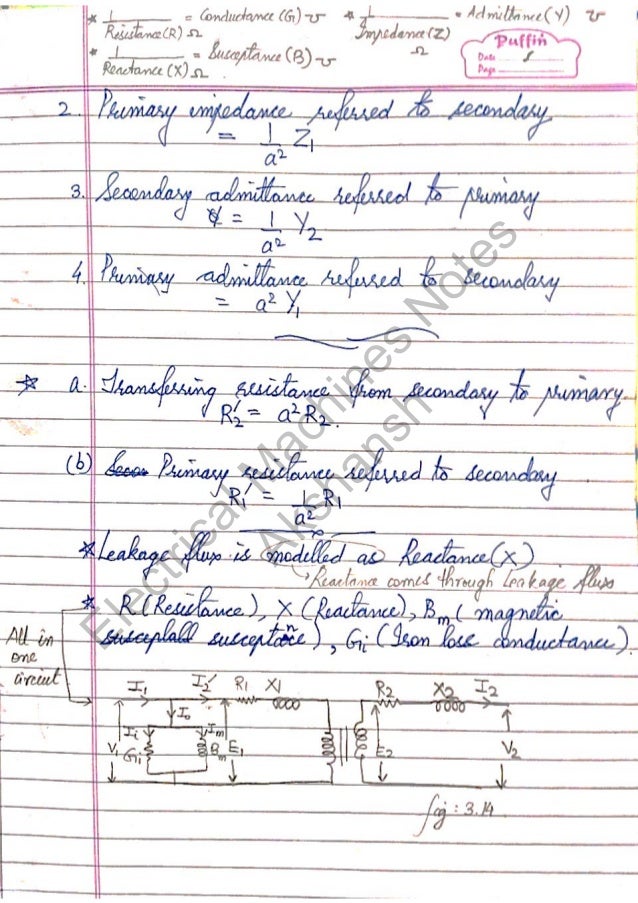 * 1/Resistance(R) Ω = Conductance (G) ʊ * 1/Impedance(Z) Ω = Admittance(Y) ʊ
* 1/Reactance(X) Ω = Susceptance (B) ʊ
Puffin
Date
Page
2. Primary impedance referred to secondary
= 1/a² Z₁
3. Secondary admittance referred to primary
= 1/a² Y₂
4. Primary admittance referred to secondary
= a² Y₁
* a. Transferring resistance from secondary to primary.
R₂' = a² R₂.
(b) Primary resistance referred to secondary
R₁' = 1/a² R₁
* Leakage flux is modelled as Reactance(X)
→ Reactance comes through Leakage flux
* R (Resistance), X (Reactance), Bm (magnetic
susceptance), Gi (Iron loss conductance).
All in
one
circuit
I₁ I₂' R₁ X₁ R₂ X₂ I₂
I₀
Ii Im
V₁ Gi Bm E₁ E₂ V₂
fig: 3.14.
Electrical Machines Notes
Akshansh